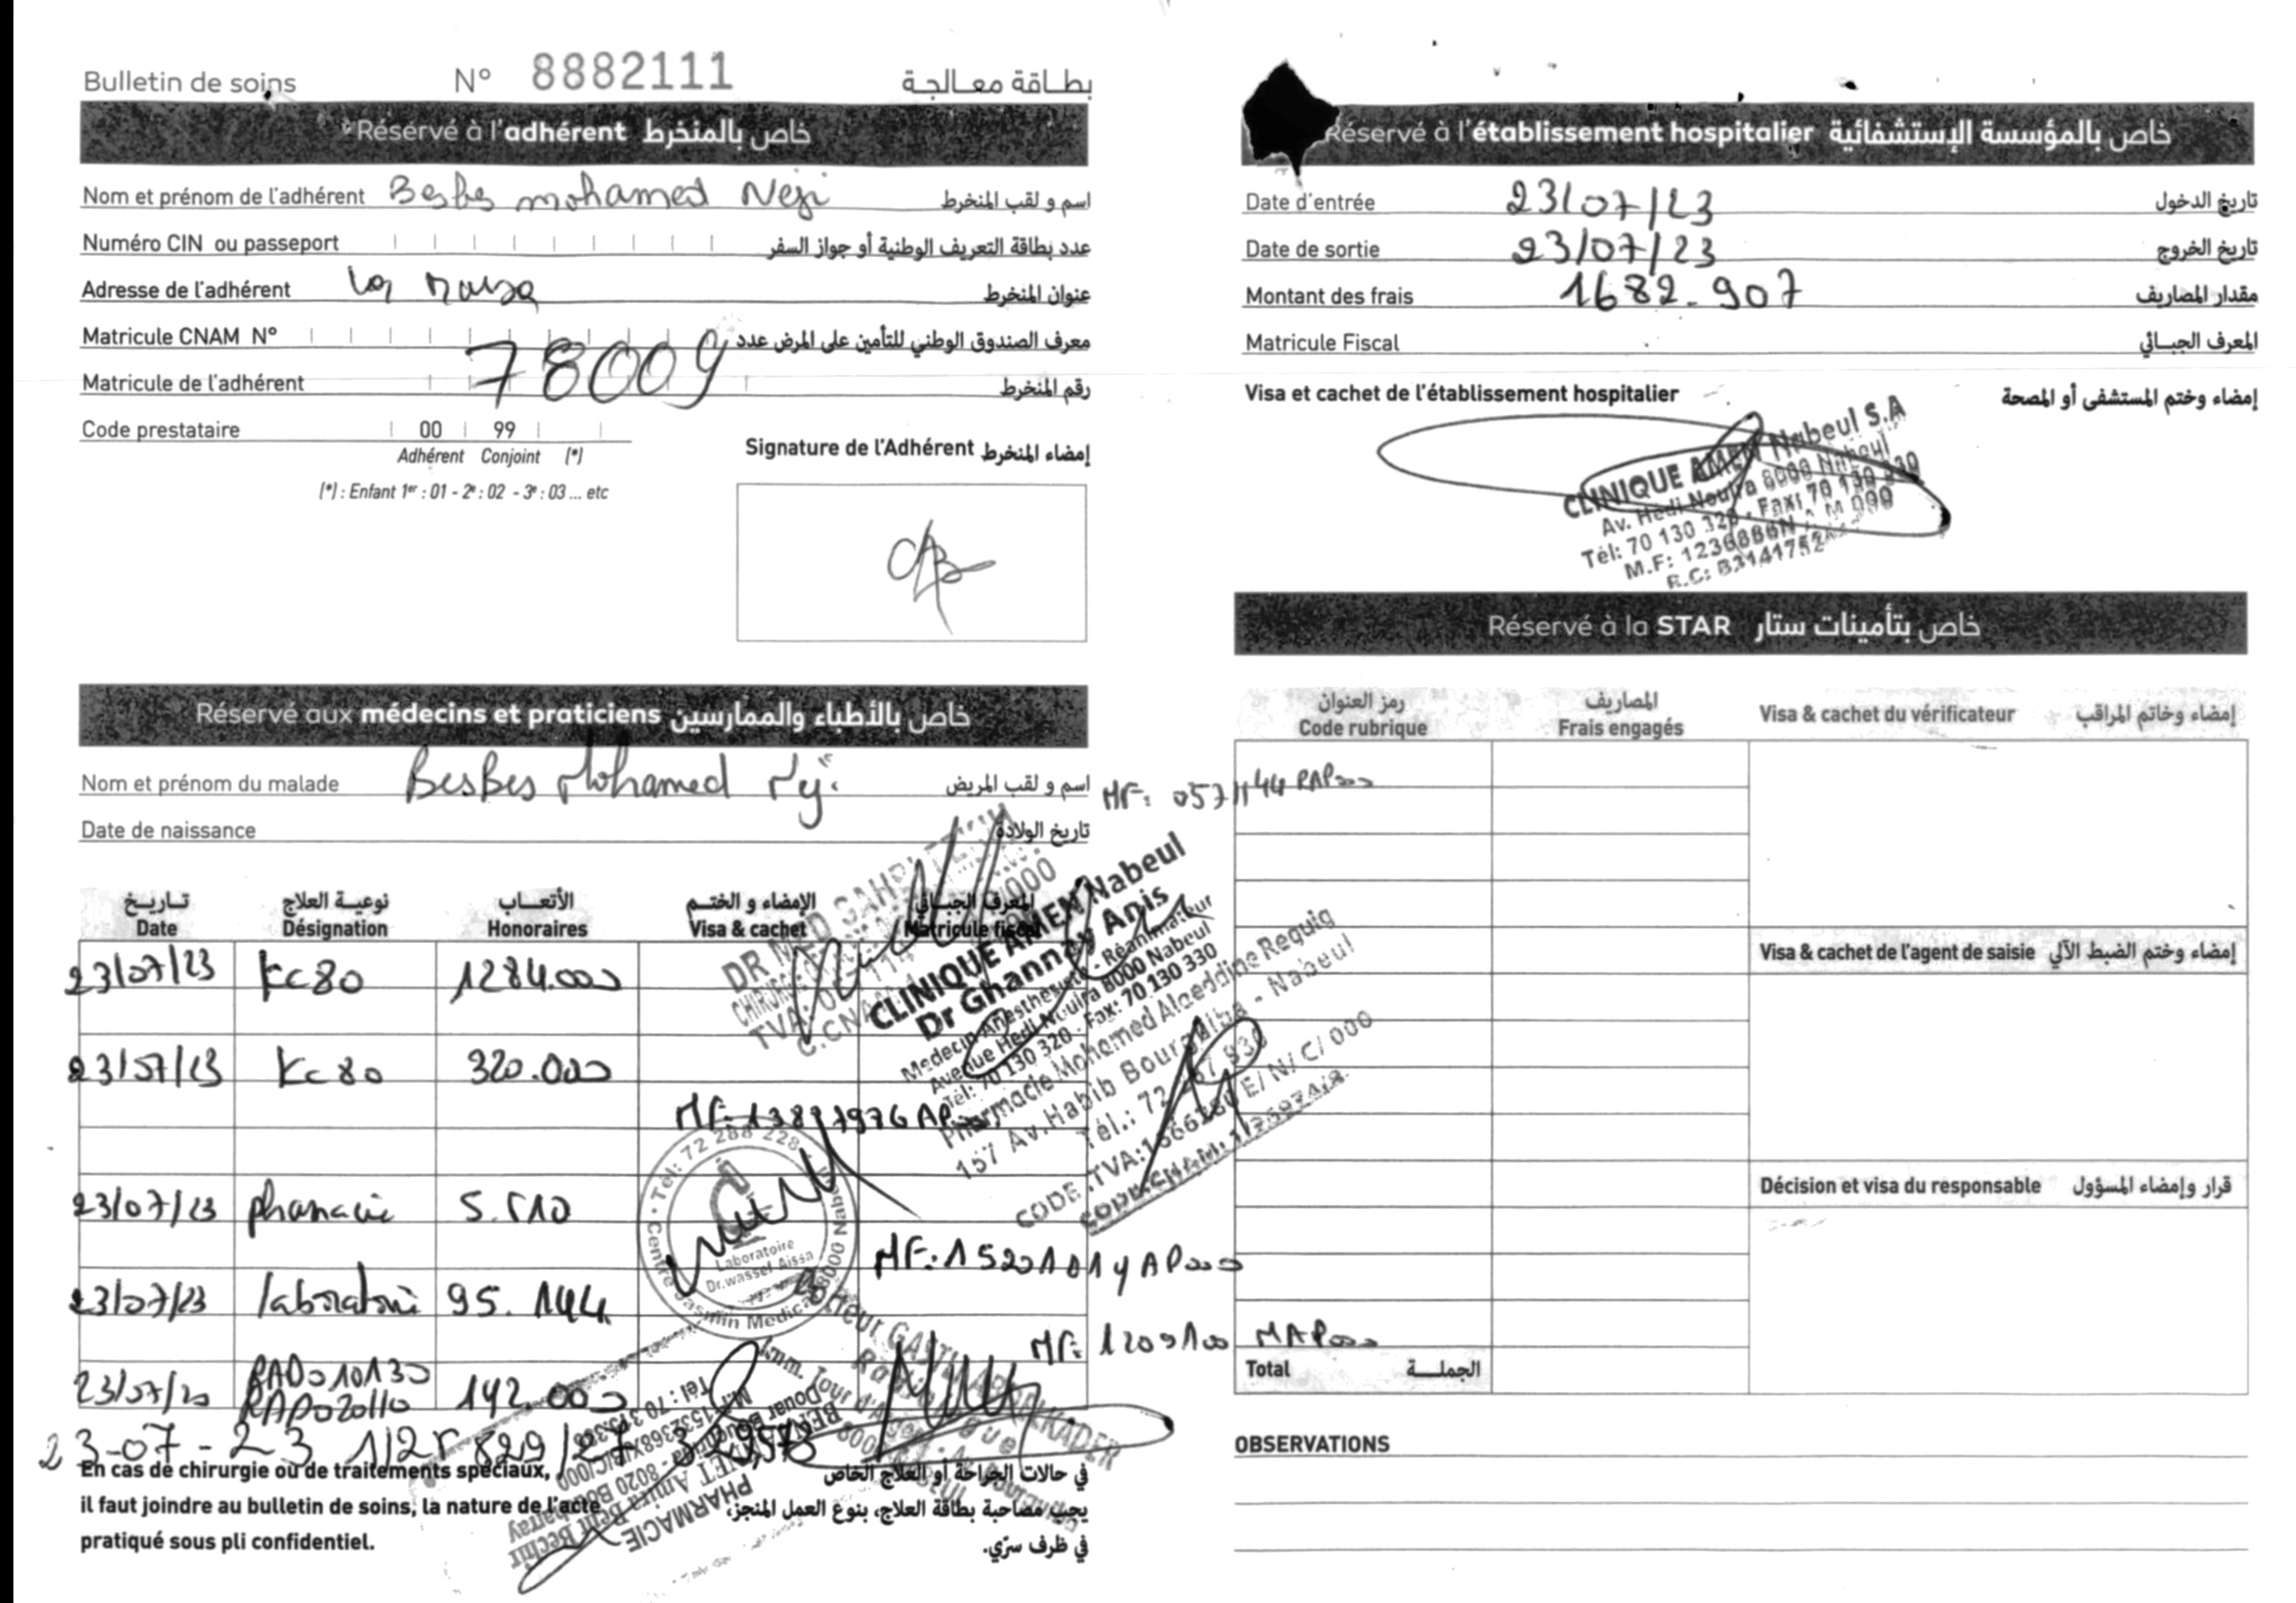 Bulletin de soins N° 8882111 بطاقة معالجة
Réservé à l'adhérent خاص بالمنخرط
Nom et prénom de l'adhérent Besbes mohamed Neji اسم و لقب المنخرط
Numéro CIN ou passeport عدد بطاقة التعريف الوطنية أو جواز السفر
Adresse de l'adhérent عنوان المنخرط
Matricule CNAM N° معرف الصندوق الوطني للتأمين على المرض عدد
Matricule de l'adhérent 78009 رقم المنخرط
Code prestataire 00 99
Adhérent Conjoint (*)
(*) : Enfant 1er : 01 - 2e : 02 - 3e : 03 ... etc
Signature de l'Adhérent إمضاء المنخرط
Réservé aux médecins et praticiens خاص بالأطباء والممارسين
Nom et prénom du malade BesBes Mohamed اسم و لقب المريض
Date de naissance تاريخ الولادة
تاريخ نوعية العلاج الأتعاب الإمضاء و الختم المعرف الجبائي
Date Désignation Honoraires Visa & cachet Matricule fiscal
23/07/23 Kc80 1284.000
23/07/23 Kc80 320.000
23/07/23 pharmacie 5.510
23/07/23 laboratoire 95.144
142.000
23-07-23
DR MED
CLINIQUE AMEN Nabeul
Dr Ghannay Anis
Medecin Anesthésiste - Réanimateur
Avenue Hedi Nouira 8000 Nabeul
Tél: 70 130 320 - Fax: 70 130 330
Pharmacie Mohamed Alaeddine Reguig
157 Av. Habib Bourguiba - Nabeul
Tél: 72 288 228
Laboratoire
Dr.wassef Aissa
Centre Jasmin Medical 8000 Nabeul
PHARMACIE
En cas de chirurgie ou de traitements spéciaux,
il faut joindre au bulletin de soins, la nature de l'acte
pratiqué sous pli confidentiel.
في حالات الجراحة أو العلاج الخاص
يجب مصاحبة بطاقة العلاج، بنوع العمل المنجز،
في ظرف سرّي.
Réservé à l'établissement hospitalier خاص بالمؤسسة الإستشفائية
Date d'entrée 23/07/23 تاريخ الدخول
Date de sortie 23/07/23 تاريخ الخروج
Montant des frais 1682-907 مقدار المصاريف
Matricule Fiscal المعرف الجبائي
Visa et cachet de l'établissement hospitalier إمضاء وختم المستشفى أو المصحة
CLINIQUE AMEN Nabeul S.A
Av. Hedi Nouira 8000 Nabeul
Tél: 70 130 320 - Fax: 70 130 330
Réservé à la STAR خاص بتأمينات ستار
رمز العنوان المصاريف
Code rubrique Frais engagés Visa & cachet du vérificateur إمضاء وخاتم المراقب
Visa & cachet de l'agent de saisie إمضاء وختم الضبط الآلي
Décision et visa du responsable قرار وإمضاء المسؤول
Total الجملة
OBSERVATIONS